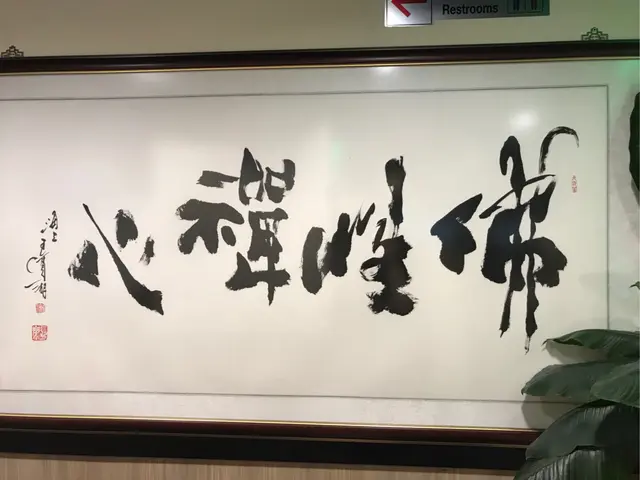 Restrooms
佛性禪心
海上